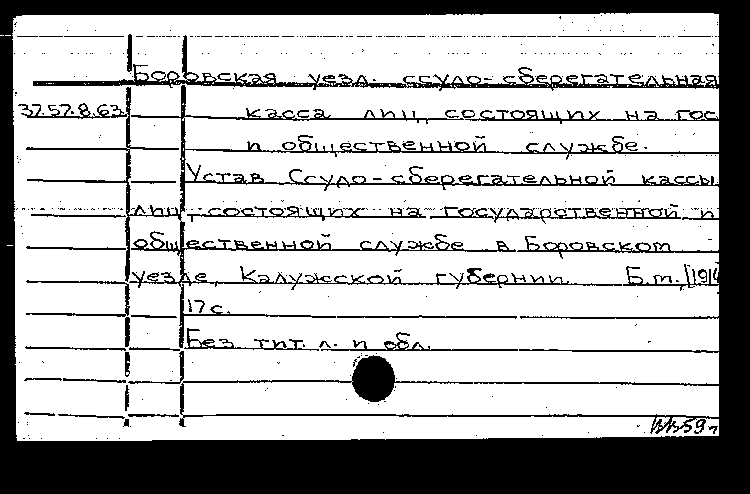 Боровская уезд. ссудо-сберегательная
37.57.8.63 касса лиц, состоящих на гос
и общественной службе.
Устав Ссудо-сберегательной кассы
лиц, состоящих на государственной и
общественной службе в Боровском
уезде, Калужской губернии. Б.м., [1914
17 с.
Без тит. л. и обл.